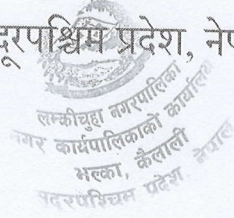 दूरपश्चिम प्रदेश, नेप
लम्कीचुहा नगरपालिका
नगर कार्यपालिकाको कार्यालय
भल्का, कैलाली
सुदूरपश्चिम प्रदेश, नेपाल